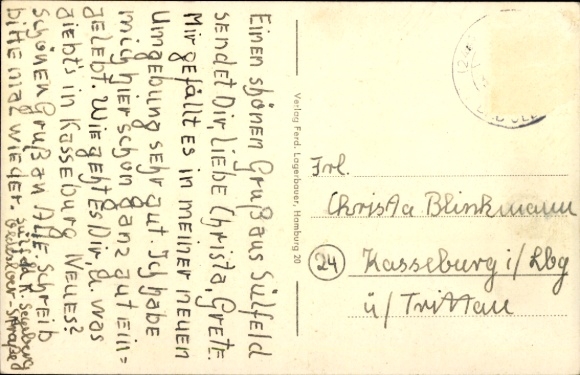 Einen shönen Gruß aus Sülfeld
sendet Dir, liebe Christa, Grete.
Mir gefällt es in meiner neuen
Umgebung sehr gut. Ich habe
mich hier schon ganz gut ein=
gelebt. Wie geht Es Dir u. was
giebt's in Kasseburg Neues?
Schönen Gruß an Alle Schreib
bitte mal wieder.
Sülfeld K. Segeberg
Verlag Ferd. Lagerbauer, Hamburg 20
Frl.
Christa Blinkmann
24 Kasseburg i/Lbg
ü/Trittau